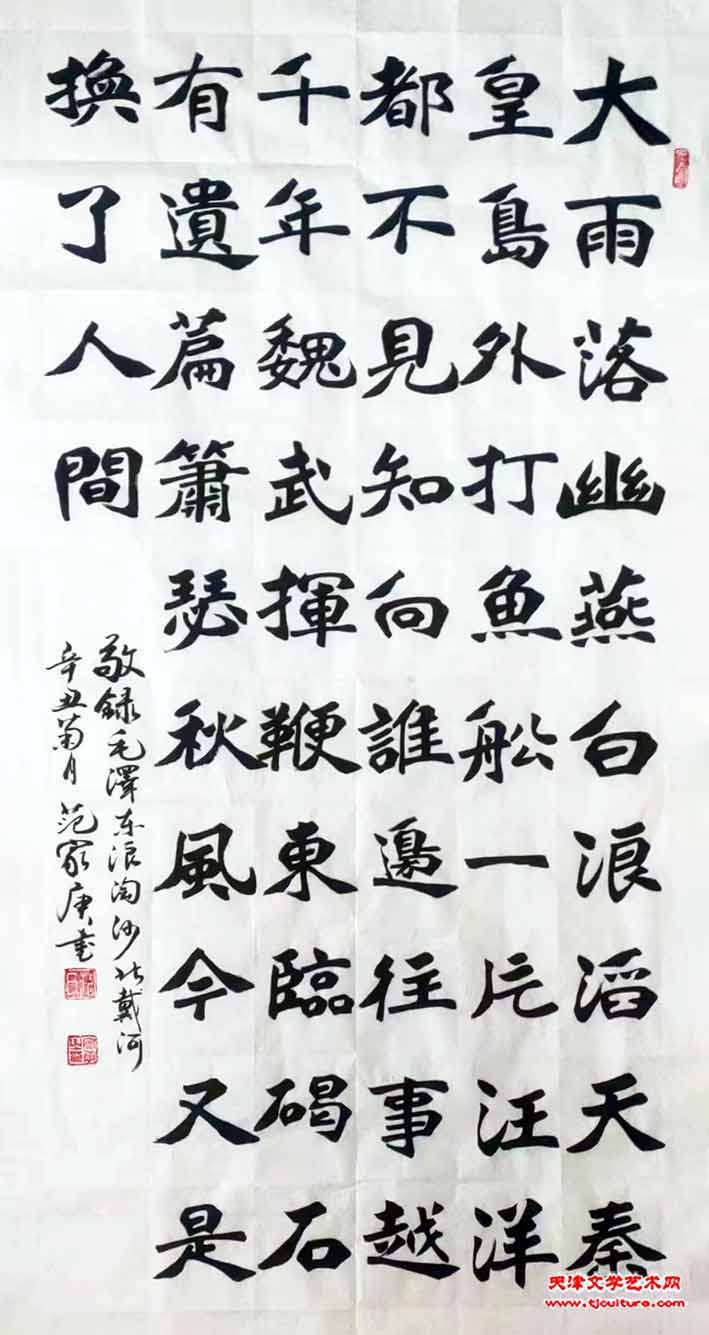 大雨落幽燕白浪滔天秦
皇島外打魚船一片汪洋
都不見知向誰邊往事越
千年魏武揮鞭東臨碣石
有遺篇簫瑟秋風今又是
換了人間
敬錄毛澤东浪淘沙北戴河
辛丑菊月范家庚書
天津文学艺术网
www.tjculture.com